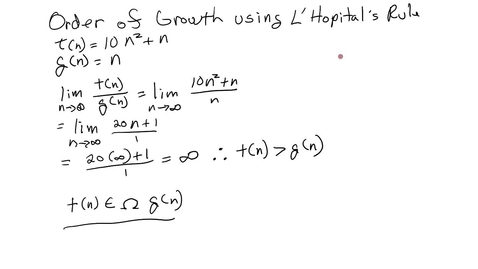 Order of Growth using L'Hopital's Rule
t(n) = 10 n² + n
g(n) = n
lim n→∞ t(n)/g(n) = lim n→∞ 10n²+n/n
= lim n→∞ 20n+1/1
= 20(∞)+1/1 = ∞ ∴ t(n) > g(n)
t(n) ∈ Ω g(n)